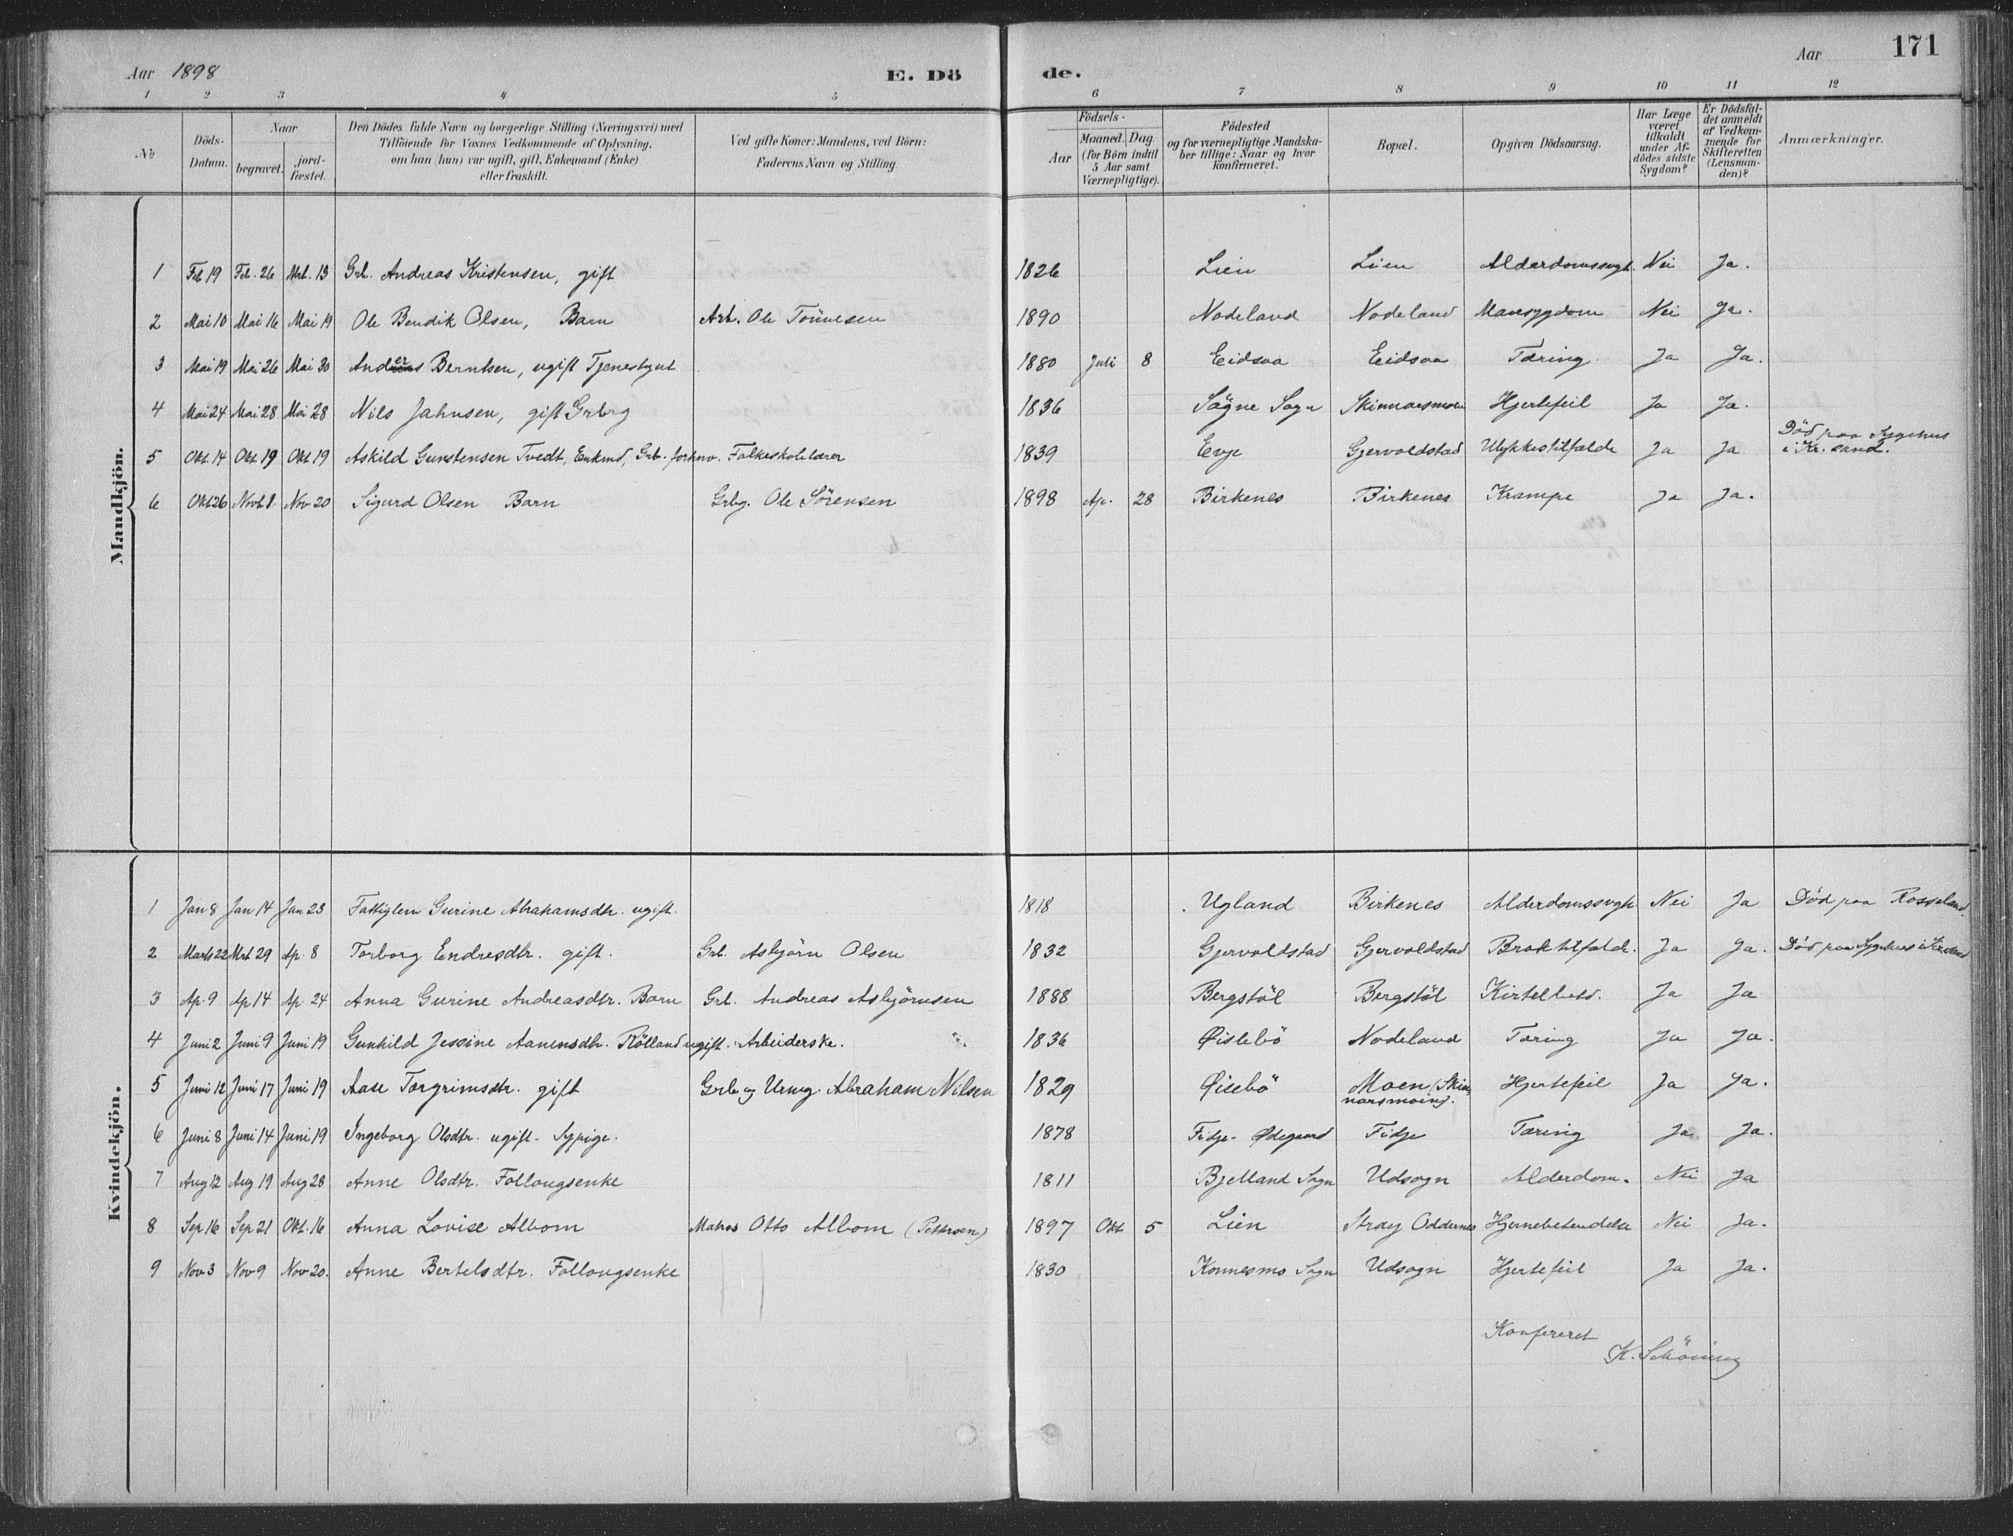 Aar 1898 E. Dö de. Aar 171
1 2 3 4 5 6 7 8 9 10 11 12
No
Döds-Datum.
Naar
begravet.
jord-fæstet.
Den Dödes fulde Navn og borgerlige Stilling (Næringsvei) med
Tilföiende for Voxnes Vedkommende af Oplysning,
om han (hun) var ugift, gift, Enkemand (Enke)
eller fraskilt.
Ved gifte Koner: Mandens, ved Börn:
Faderens Navn og Stilling.
Födsels-
Aar
Maaned. Dag.
(for Börn indtil
5 Aar samt
Værnepligtige).
Födested
og for værnepligtige Mandska-
ber tillige: Naar og hvor
konfirmeret.
Bopæl.
Opgiven Dödsaarsag.
Har Læge
været
tilkaldt
under Af-
dödes sidste
Sygdom?
Er Dödsfal-
det anmeldt
af Vedkom-
mende for
Skifteretten
(Lensman-
den)?
Anmærkninger.
Mandkjön.
1 Feb 19 Feb. 26 Mrt. 13 Grb. Andreas Kristensen, gift 1826 Lien Lien Alderdomssvgh. Nei Ja.
2 Mai 10 Mai 16 Mai 19 Ole Bendik Olsen, Barn Arb. Ole Tönnesen 1890 Nodeland Nodeland Mavesygdom Nei Ja.
3 Mai 19 Mai 26 Mai 30 Anders Berntsen, ugift Tjenestgut 1880 Juli 8 Eidsaa Eidsaa Tæring. Ja Ja.
4 Mai 24 Mai 28 Mai 28 Nils Jahnsen, gift Grbrg 1836 Sögne Sogn Skinnarsmoen Hjertefeil Ja Ja.
5 Okt. 14 Okt 19 Okt 19 Askild Gunstensen Tvedt, Enkmd, Grb. forhnv. Folkeskolelærer 1839 Evje Gjervoldstad Ulykkestilfælde Ja Ja Död paa Sygehus
i Kr.sand.
6 Okt 26 Novb 1. Nov 20 Sigurd Olsen Barn Grbg. Ole Sörensen 1898 Ap. 28 Birkenes Birkenes Krampe Ja Ja.
Kvindekjön.
1 Jan 8 Jan 14 Jan 23 Fattiglem Gurine Abrahamsdtr. ugift. 1818 Ugland Birkenes Alderdomssvgh Nei Ja Död paa Rosseland.
2 Marts 22 Mrt 29 Ap. 8 Torborg Endresdtr. gift. Grb. Asbjörn Olsen 1832 Gjervoldstad Gjervoldstad Broktilfælde. Ja Ja. Död paa Sygehus i Krsand
3 Ap. 9 Ap 14 Ap 24 Anna Gurine Andreasdtr. Barn Grb. Andreas Asbjörnsen 1888 Bergstöl Bergstöl Kirtelbetd. Ja Ja
4 Juni 2 Juni 9 Juni 19 Gunhild Jessine Aanensdtr. Röllland ugift. Arbeiderske. 1836 Øislebö Nodeland Tæring Ja Ja.
5 Juni 12 Juni 17 Juni 19 Aase Torgrimsdtr. gift Grb. og Urmg. Abraham Nilsen 1829 Øislebö Moen (Skin-
narsmoen). Hjertefeil Ja Ja.
6 Juni 8 Juni 14 Juni 19 Ingeborg Olsdtr. ugift - Sypige. 1878 Fidje - Ødegaard Fidje Tæring Ja Ja.
7 Aug 12 Aug 19 Aug 28 Anne Olsdtr. Follougsenke 1811 Bjelland Sogn Udsogn Alderdom. Nei Ja
8 Sep 16 Sep 21 Okt. 16 Anna Lovise Albom Matros Otto Albom (Pettersen) 1897 Okt 5 Lien Stray Oddernes Hjernebetendelse Nei Ja.
9 Nov 3 Nov 9 Nov 20. Anne Bertelsdtr. Follougsenke 1830 Konnesmo Sogn Udsogn Hjertefeil Ja Ja.
Konfereret
K. Schöning